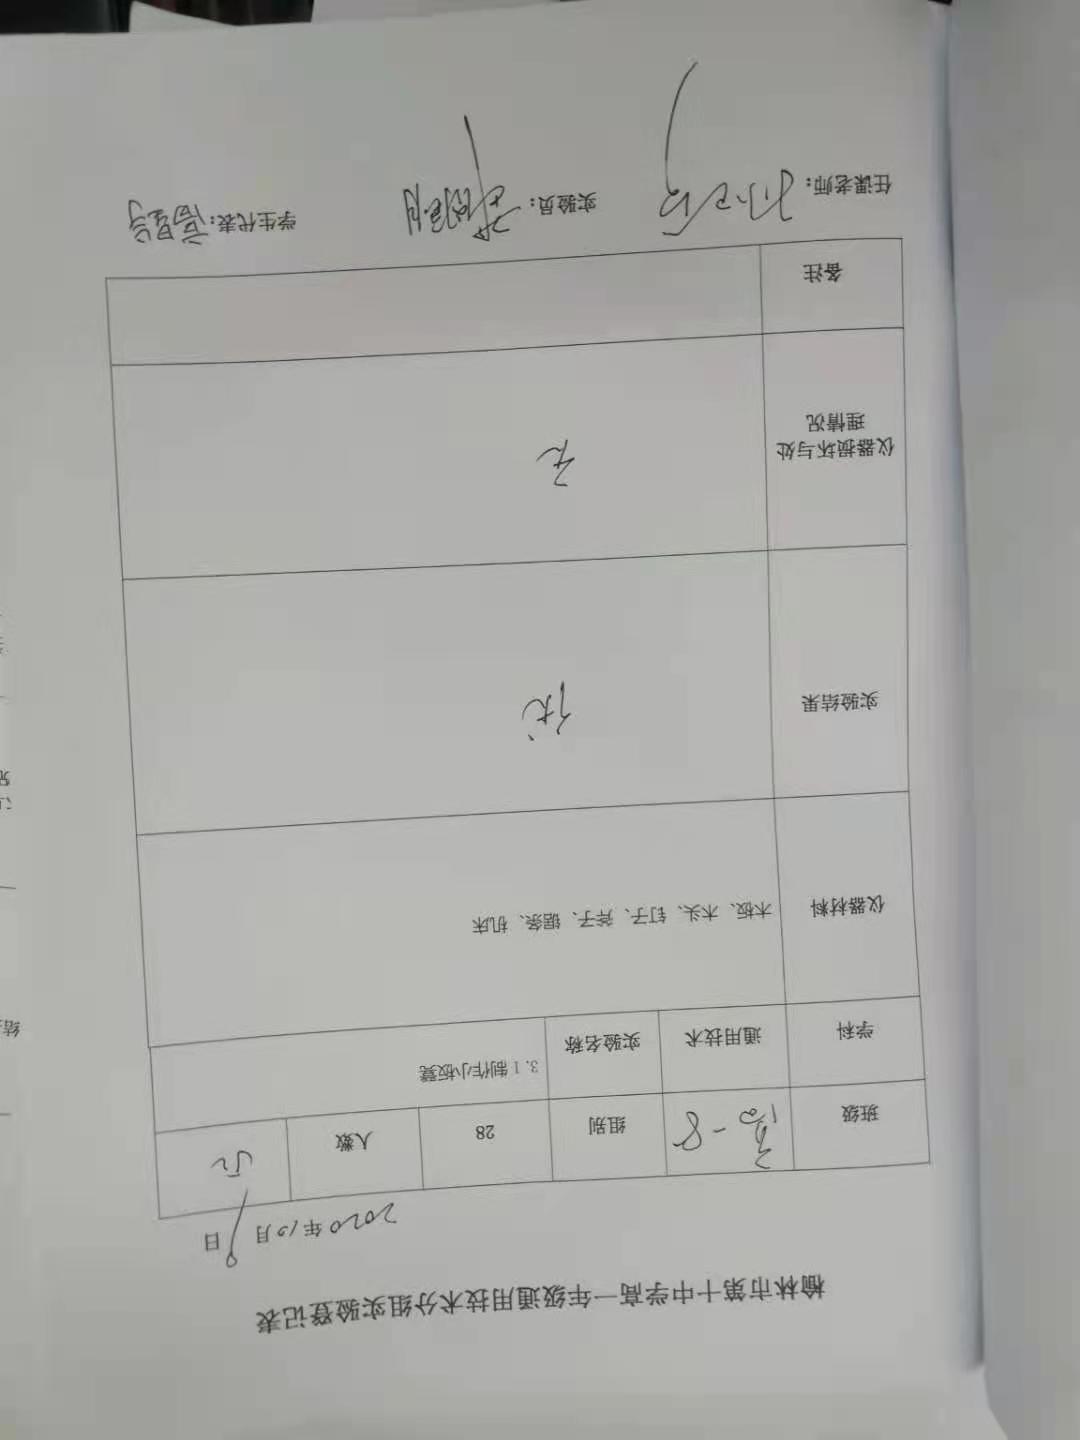 榆林市第十中学高一年级通用技术分组实验登记表
2020年10月9日
班级 高-8 组别 28 人数 52
学科 通用技术 实验名称 3.1 制作小板凳
仪器材料 木板、木头、钉子、斧子、锯条、机床
实验结果 优
仪器损坏与处
理情况 无
备注
任课老师： 实验员： 学生代表：